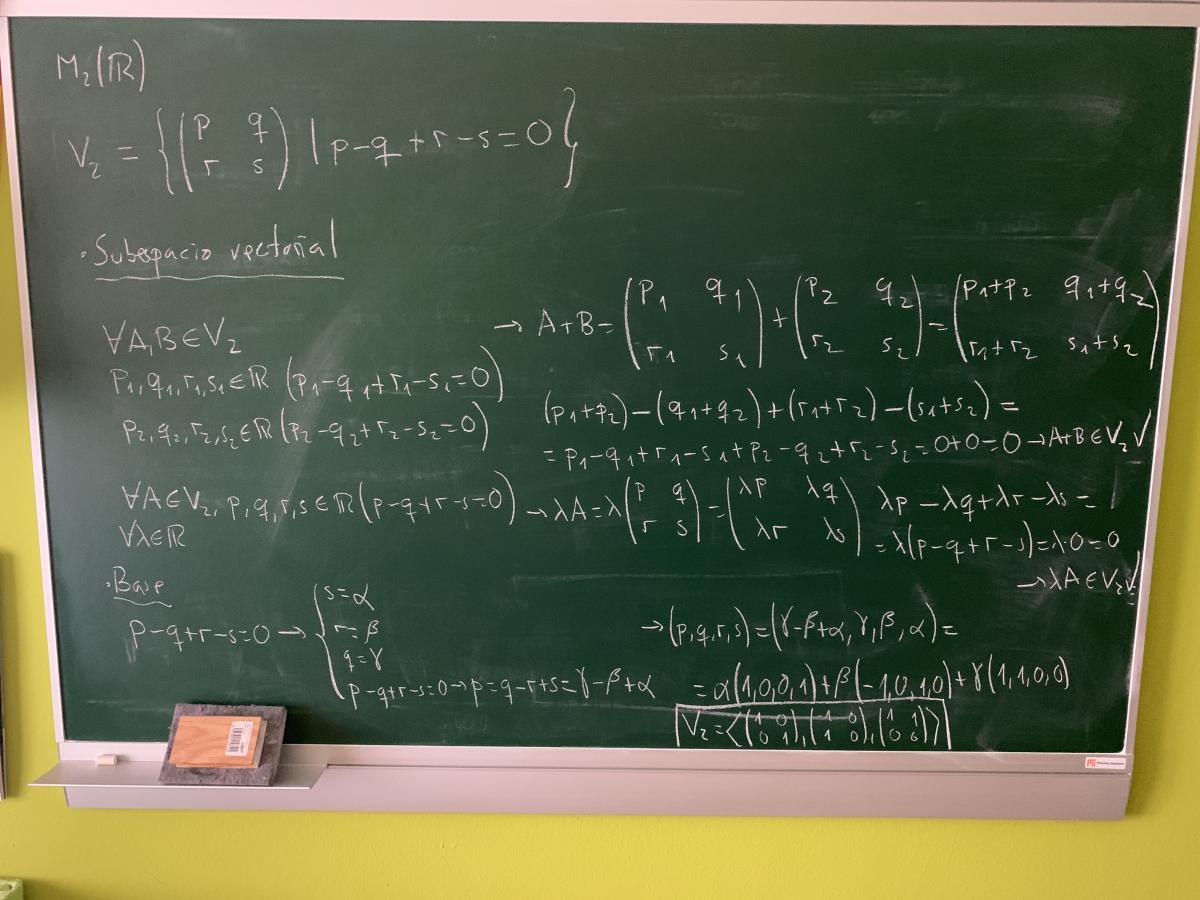 M₂(ℝ)
V₂ = {(p q / r s) | p-q+r-s=0}
· Subespacio vectorial
∀A,B∈V₂
p₁,q₁,r₁,s₁∈ℝ (p₁-q₁+r₁-s₁=0)
p₂,q₂,r₂,s₂∈ℝ (p₂-q₂+r₂-s₂=0)
→ A+B = (p₁ q₁ / r₁ s₁) + (p₂ q₂ / r₂ s₂) = (p₁+p₂ q₁+q₂ / r₁+r₂ s₁+s₂)
(p₁+p₂)-(q₁+q₂)+(r₁+r₂)-(s₁+s₂)=
=p₁-q₁+r₁-s₁+p₂-q₂+r₂-s₂=0+0=0→A+B∈V₂√
∀A∈V₂, p,q,r,s∈ℝ (p-q+r-s=0)
∀λ∈ℝ
→λA=λ(p q / r s)=(λp λq / λr λs)
λp-λq+λr-λs=
=λ(p-q+r-s)=λ·0=0
→λA∈V₂√
· Base
p-q+r-s=0→{
s=α
r=β
q=γ
p-q+r-s=0→p=q-r+s=γ-β+α
→(p,q,r,s)=(γ-β+α,γ,β,α)=
=α(1,0,0,1)+β(-1,0,1,0)+γ(1,1,0,0)
V₂=<(1 0 / 0 1),(-1 0 / 1 0),(1 1 / 0 0)>